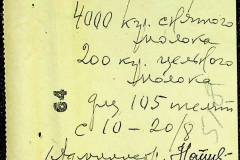 4000 кгл. снятого
молока
200 кгл. цельного
молока
64
для 105 телят
с 10-20/8